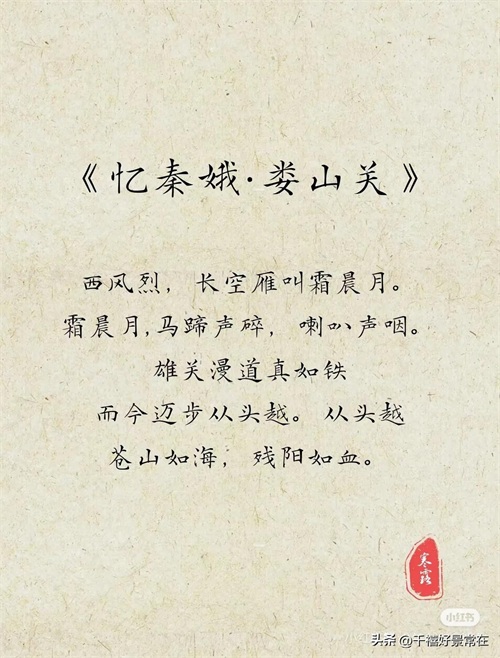 《忆秦娥·娄山关》
西风烈，长空雁叫霜晨月。
霜晨月,马蹄声碎，喇叭声咽。
雄关漫道真如铁
而今迈步从头越。从头越
苍山如海，残阳如血。
寒露
小红书
头条 @千禧好景常在